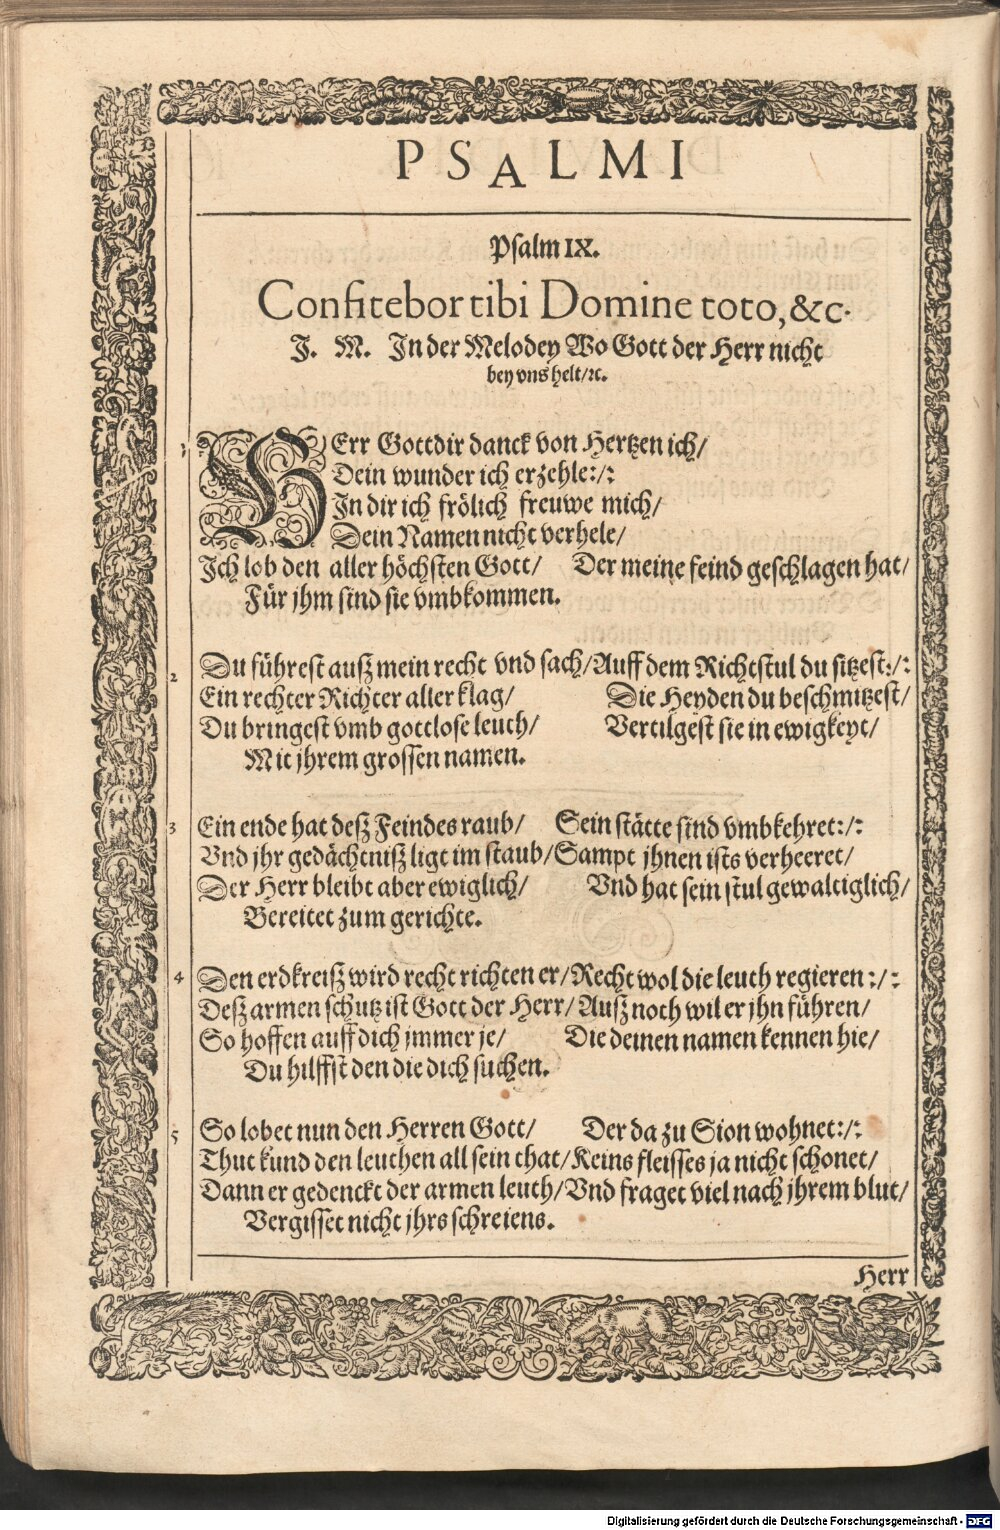 PSALMI
Psalm IX.
Confitebor tibi Domine toto, &c.
J. M. In der Melodey Wo Gott der Herr nicht
bey vns helt/ꝛc.
1 HErr Gott dir danck von Hertzen ich/
Dein wunder ich erzehle:/:
In dir ich frölich freuwe mich/
Dein Namen nicht verhele/
Ich lob den aller höchsten Gott/ Der meine feind geschlagen hat/
Für jhm sind sie vmbkommen.
2 Du führest ausz mein recht vnd sach/Auff dem Richtstul du sitzest:/:
Ein rechter Richter aller klag/ Die Heyden du beschmitzest/
Du bringest vmb gottlose leuth/ Vertilgest sie in ewigkeyt/
Mit jhrem grossen namen.
3 Ein ende hat desz Feindes raub/ Sein stätte sind vmbkehret:/:
Vnd jhr gedächtnisz ligt im staub/Sampt jhnen ists verheeret/
Der Herr bleibt aber ewiglich/ Vnd hat sein stul gewaltiglich/
Bereitet zum gerichte.
4 Den erdkreisz wird recht richten er/Recht wol die leuth regieren:/:
Desz armen schutz ist Gott der Herr/Ausz noth wil er jhn führen/
So hoffen auff dich jmmer je/ Die deinen namen kennen hie/
Du hilffst den die dich suchen.
5 So lobet nun den Herren Gott/ Der da zu Sion wohnet:/:
Thut kund den leuthen all sein that/Keins fleisses ja nicht schonet/
Dann er gedenckt der armen leuth/Vnd fraget viel nach jhrem blut/
Vergisset nicht jhrs schreiens.
Herr
Digitalisierung gefördert durch die Deutsche Forschungsgemeinschaft - DFG